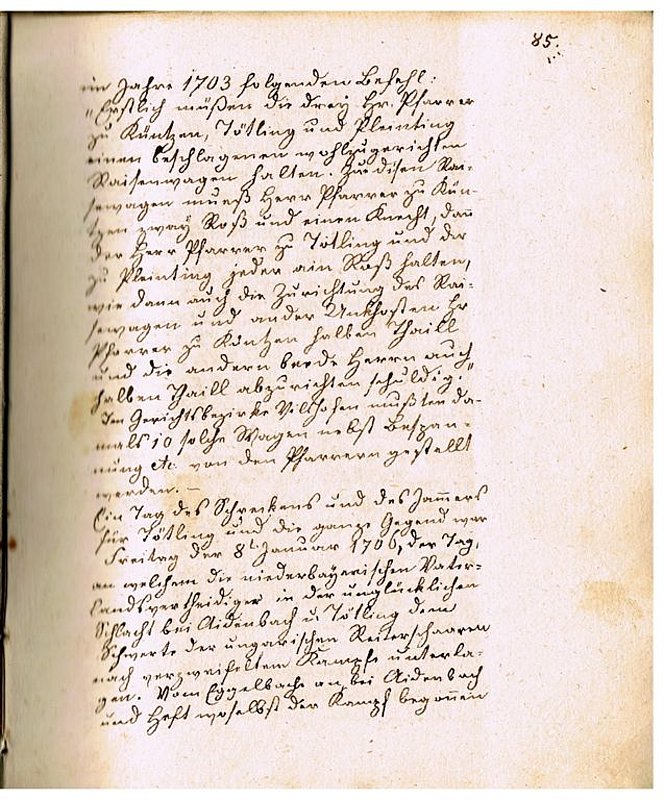 85.
im Jahre 1703 folgenden Befehl:
„Erstlich müßen die drey Hr. Pfarrer
zu Küntzen, Tötling und Pleinting
einen beschlagenen wohlzugerichten
Raisenwagen halten. Zu disen Rai-
sewagen mueß Herr Pfarrer zu Kün-
tzen zway Roß und einen Knecht, dan
der Herr Pfarrer zu Tötling und der
zu Pleinting jeder ain Roß halten,
wie dann auch die Zurichtung des Rai-
sewagen und ander Unkhosten Hr
Pfarrer zu Kuntzen halben Thaill
und die andern beede Herrn auch
halben Thaill abzurichten schuldig."
Im Gerichtsbezirke Vilshofen mußten da-
mals 10 solche Wagen nebst Bespan-
nung etc. von den Pfarrern gestellt
werden. –
Ein Tag des Schreckens und des Jammers
für Tötling und die ganze Gegend war
Freitag der 8t Januar 1706, der Tag,
an welchem die niederbayerischen Vater-
landsvertheidiger in der unglücklichen
Schlacht bei Aidenbach u Tötling dem
Schwerte der ungarischen Reiterschaaren
nach verzweifeltem Kampfe unterla-
gen. Vom Eggelbache an, bei Aidenbach
und Heft woselbst der Kampf begonnen